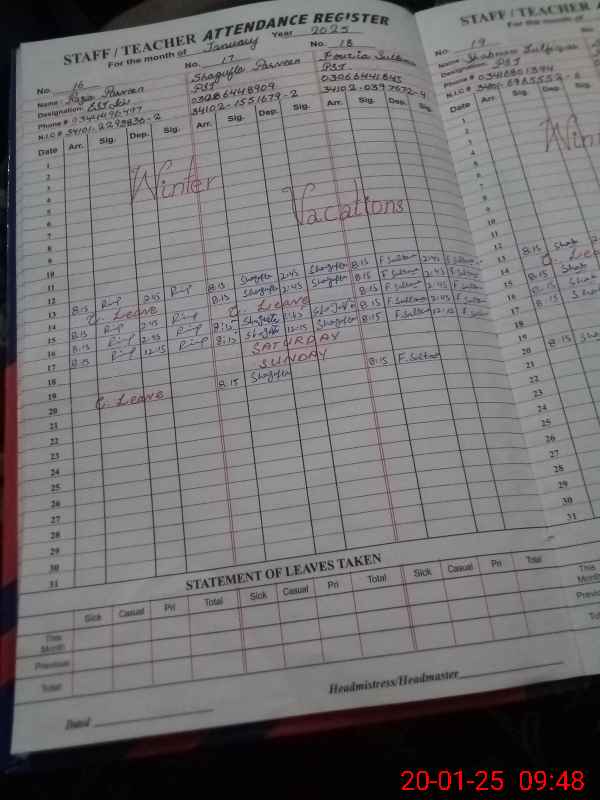 STAFF / TEACHER ATTENDANCE REGISTER
For the month of January Year 2025
No. 16
Name: Razia Parveen
Designation: EST
Phone #
N.I.C # 34101-2293836-2
No. 17
Shagufta Parveen
PST
03086448909
34102-1551679-2
No. 18
Fouzia Sultana
PST
03066441845
Date Arr. Sig. Dep. Sig. Arr. Sig. Dep. Sig. Arr. Sig. Dep. Sig.
1
2
3
4
5
6
7
8
9
10
11
12
13
14
15
16
17
18
19
20
21
22
23
24
25
26
27
28
29
30
31
Winter Vacations
8:15 Shagufta 2:45 Shagufta 8:15 F. Sultana 2:45 F. Sultana
8:15 2:45 8:15 Shagufta 2:45 Shagufta 8:15 F. Sultana 2:45 F. Sultana
C. Leave C. Leave 8:15 F. Sultana 2:45 F. Sultana
8:15 2:45 8:15 Shagufta 2:45 Shagufta 8:15 F. Sultana 2:45 F. Sultana
8:15 12:15 8:15 Shagufta 12:15 Shagufta 8:15 F. Sultana 12:15 F. Sultana
SATURDAY
SUNDAY
C. Leave 8:15 Shagufta 8:15 F. Sultana
STATEMENT OF LEAVES TAKEN
Sick Casual Pri Total Sick Casual Pri Total Sick Casual Pri Total
This Month
Previous
Total
Dated
Headmistress/Headmaster
STAFF / TEACHER A
For the month of
No. 19
Name Shabnam
Designation PST
Phone # 03416801394
N.I.C #
Date Arr. Sig. Dep.
1
2
3
4
5
6
7
8
9
10
11
12
13
14
15
16
17
18
19
20
21
22
23
24
25
26
27
28
29
30
31
8:15 Shab
C. Lea
8:15 Shab
8:15 Shab
8:15 Shab
8:15 Shab
This Month
Previous
20-01-25 09:48